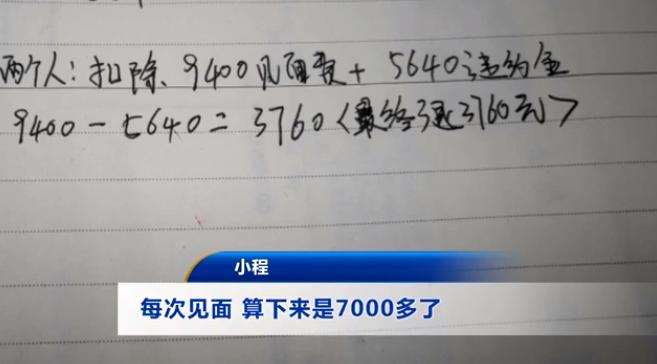 两个人：扣除、9400见面费+5640违约金
9400-5640=3760<最终退3760元>
小程
每次见面 算下来是7000多了